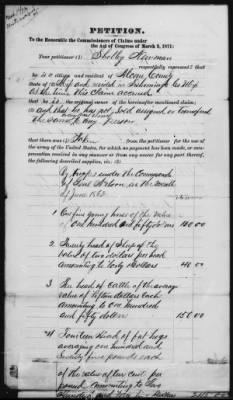 PETITION.
To the Honorable the Commissioners of Claims under
the Act of Congress of March 3, 1871:
Your petitioner Shelby Newman
respectfully represent that
he is a citizen and resident of County
State of and resided in Tishomingo Co Miss
at the time this claim accrued
that he is the original owner of the hereinafter mentioned claim;
and that he has not sold assigned or transferred
the same to any person
that there was taken from the petitioner for the use of
the army of the United States, for which no payment has been made, or compensation received in any manner or from any source whatever for the same, or any part thereof, the following described supplies, viz:
By troops under the Command
of Genl Nelson in the month
of June 1862
1 One fine young horse of the value
of one hundred and fifty dollars 150.00
2 Twenty head of Sheep of the
value of two dollars per head
amounting to forty Dollars 40.00
3 Ten head of Cattle of the average
value of fifteen dollars each
amounting to one hundred
and fifty dollars 150.00
4 Fourteen head of fat hogs
averaging one hundred and
Seventy five pounds each
of the value of ten cents per
pound amounting to Two
Hundred and forty five Dollars